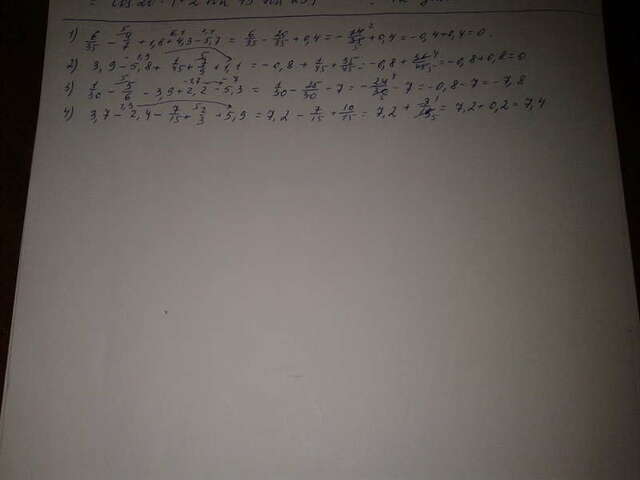 1) 6/35 - 4/7 + 1,8 + 4,3 - 5,7 = 6/35 - 20/35 + 0,4 = - 14/35 + 0,4 = -0,4 + 0,4 = 0.
2) 3,9 - 5,8 + 1/45 + 7/9 + 1,1 = -0,8 + 1/45 + 35/45 = -0,8 + 36/45 = -0,8 + 0,8 = 0
3) 1/30 - 5/6 - 3,9 + 2,2 - 5,3 = 1/30 - 25/30 - 7 = - 24/30 - 7 = -0,8 - 7 = -7,8
4) 3,7 - 2,4 - 7/15 + 2/3 + 5,9 = 7,2 - 7/15 + 10/15 = 7,2 + 3/15 = 7,2 + 0,2 = 7,4